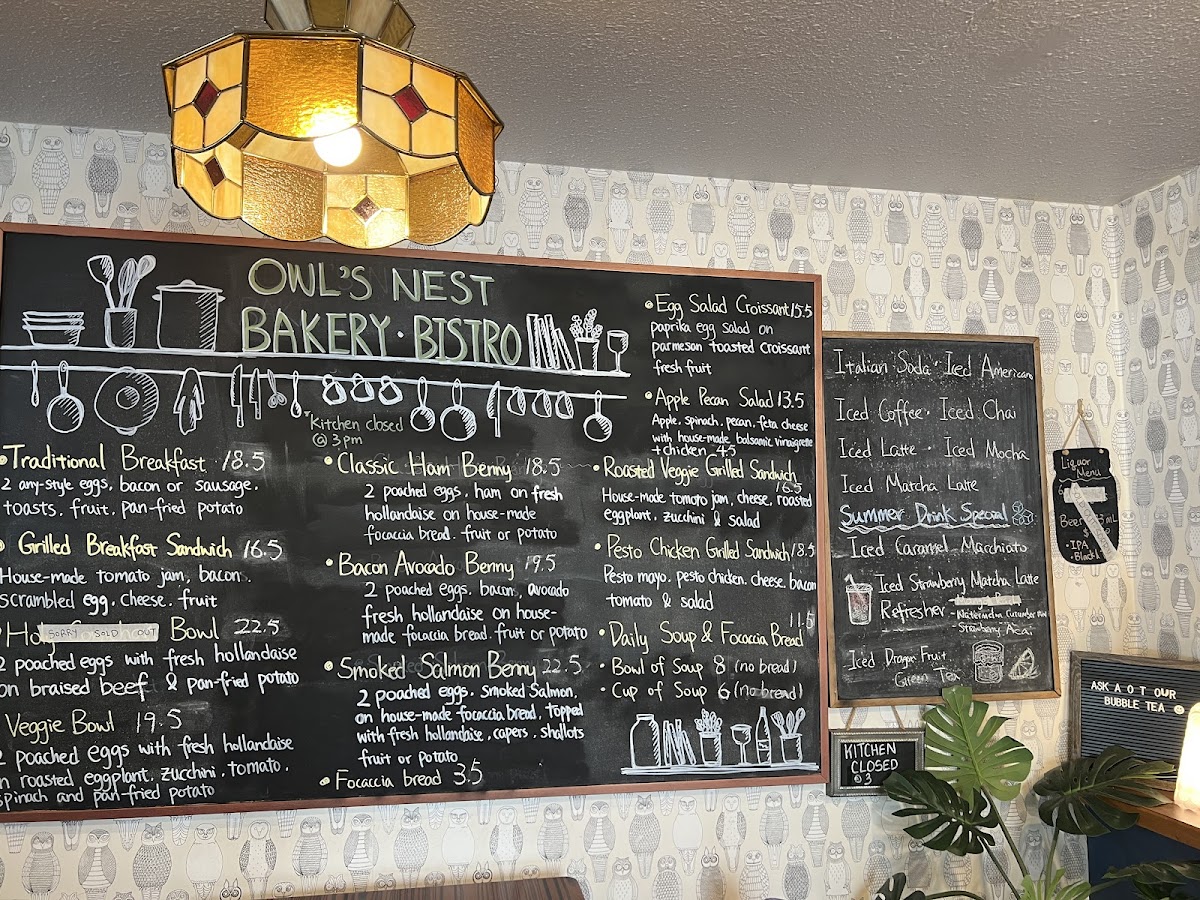 OWL'S NEST
BAKERY · BISTRO
Kitchen closed
@ 3pm
• Traditional Breakfast 18.5
2 any-style eggs, bacon or sausage,
toasts, fruit, pan-fried potato
• Grilled Breakfast Sandwich 16.5
House-made tomato jam, bacon,
scrambled egg, cheese, fruit
SORRY SOLD OUT
Bowl 22.5
2 poached eggs with fresh hollandaise
on braised beef & pan-fried potato
Veggie Bowl 19.5
2 poached eggs with fresh hollandaise
n roasted eggplant, zucchini, tomato,
spinach and pan-fried potato
• Classic Ham Benny 18.5
2 poached eggs, ham on fresh
hollandaise on house-made
focaccia bread. fruit or potato
• Bacon Avocado Benny 19.5
2 poached eggs, bacon, avocado
fresh hollandaise on house-
made focaccia bread. fruit or potato
• Smoked Salmon Benny 22.5
2 poached eggs, smoked salmon,
on house-made focaccia bread, topped
with fresh hollandaise, capers, shallots
fruit or potato
• Focaccia bread 3.5
• Egg Salad Croissant 15.5
paprika egg salad on
parmesan toasted croissant
fresh fruit
• Apple Pecan Salad 13.5
Apple, spinach, pecan, feta cheese
with house-made balsamic vinaigrette
+ chicken 4.5
• Roasted Veggie Grilled Sandwich
16.5
House-made tomato jam, cheese, roasted
eggplant, zucchini & salad
• Pesto Chicken Grilled Sandwich 18.5
Pesto mayo, pesto chicken, cheese, bacon
tomato & salad
11.5
• Daily Soup & Focaccia Bread
• Bowl of Soup 8 (no bread)
• Cup of Soup 6 (no bread)
Italian Soda · Iced Americano
Iced Coffee · Iced Chai
Iced Latte · Iced Mocha
Iced Matcha Latte
Summer Drink Special
Iced Caramel Macchiato
Iced Strawberry Matcha Latte
Refresher
Watermelon Cucumber Mint
Strawberry Acai
Iced Dragon Fruit
Green Tea
Liquor
Menu
Beer
• IPA
• Black
KITCHEN
CLOSED
@3
ASK A O T OUR
BUBBLE TEA